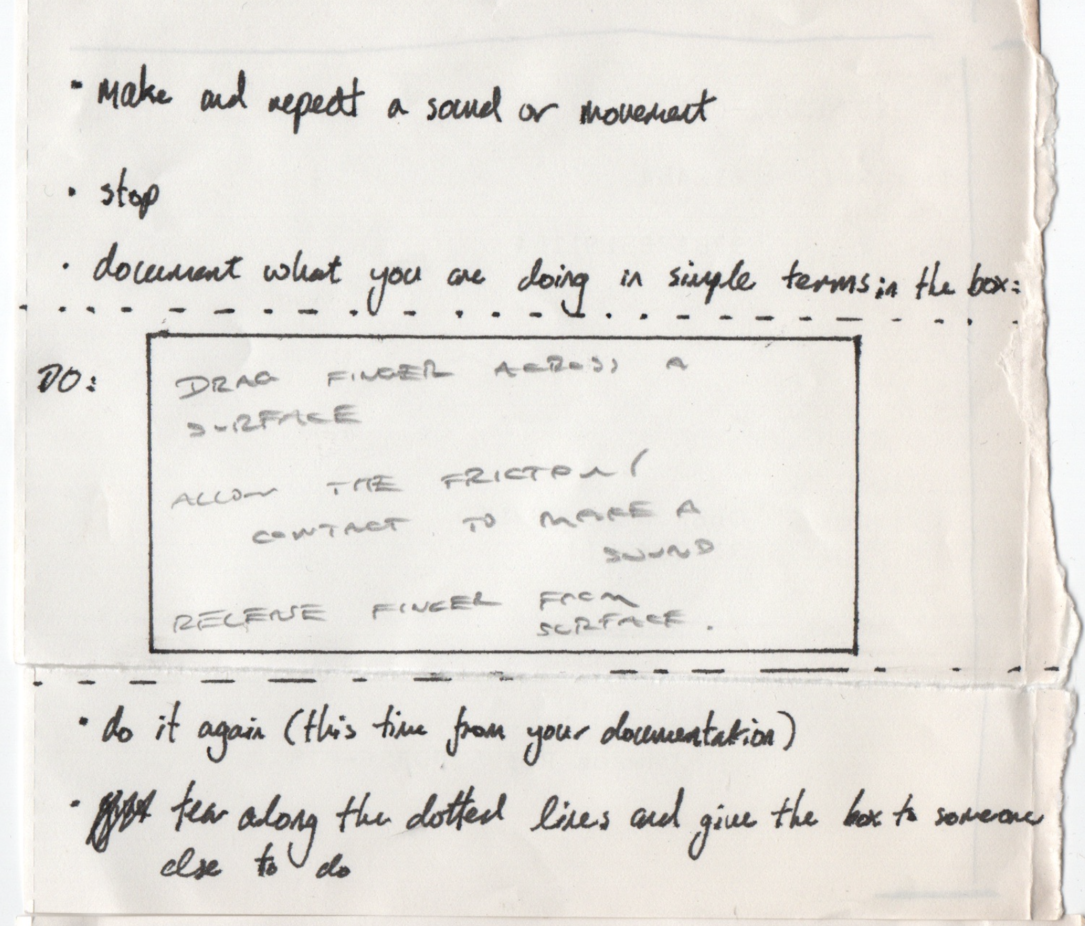 · make and repeat a sound or movement
· stop
· document what you are doing in simple terms in the box:
DO:
DRAG FINGER ACROSS A
SURFACE
ALLOW THE FRICTION/
CONTACT TO MAKE A
SOUND
RELEASE FINGER FROM
SURFACE.
· do it again (this time from your documentation)
· tear along the dotted lines and give the box to someone
else to do